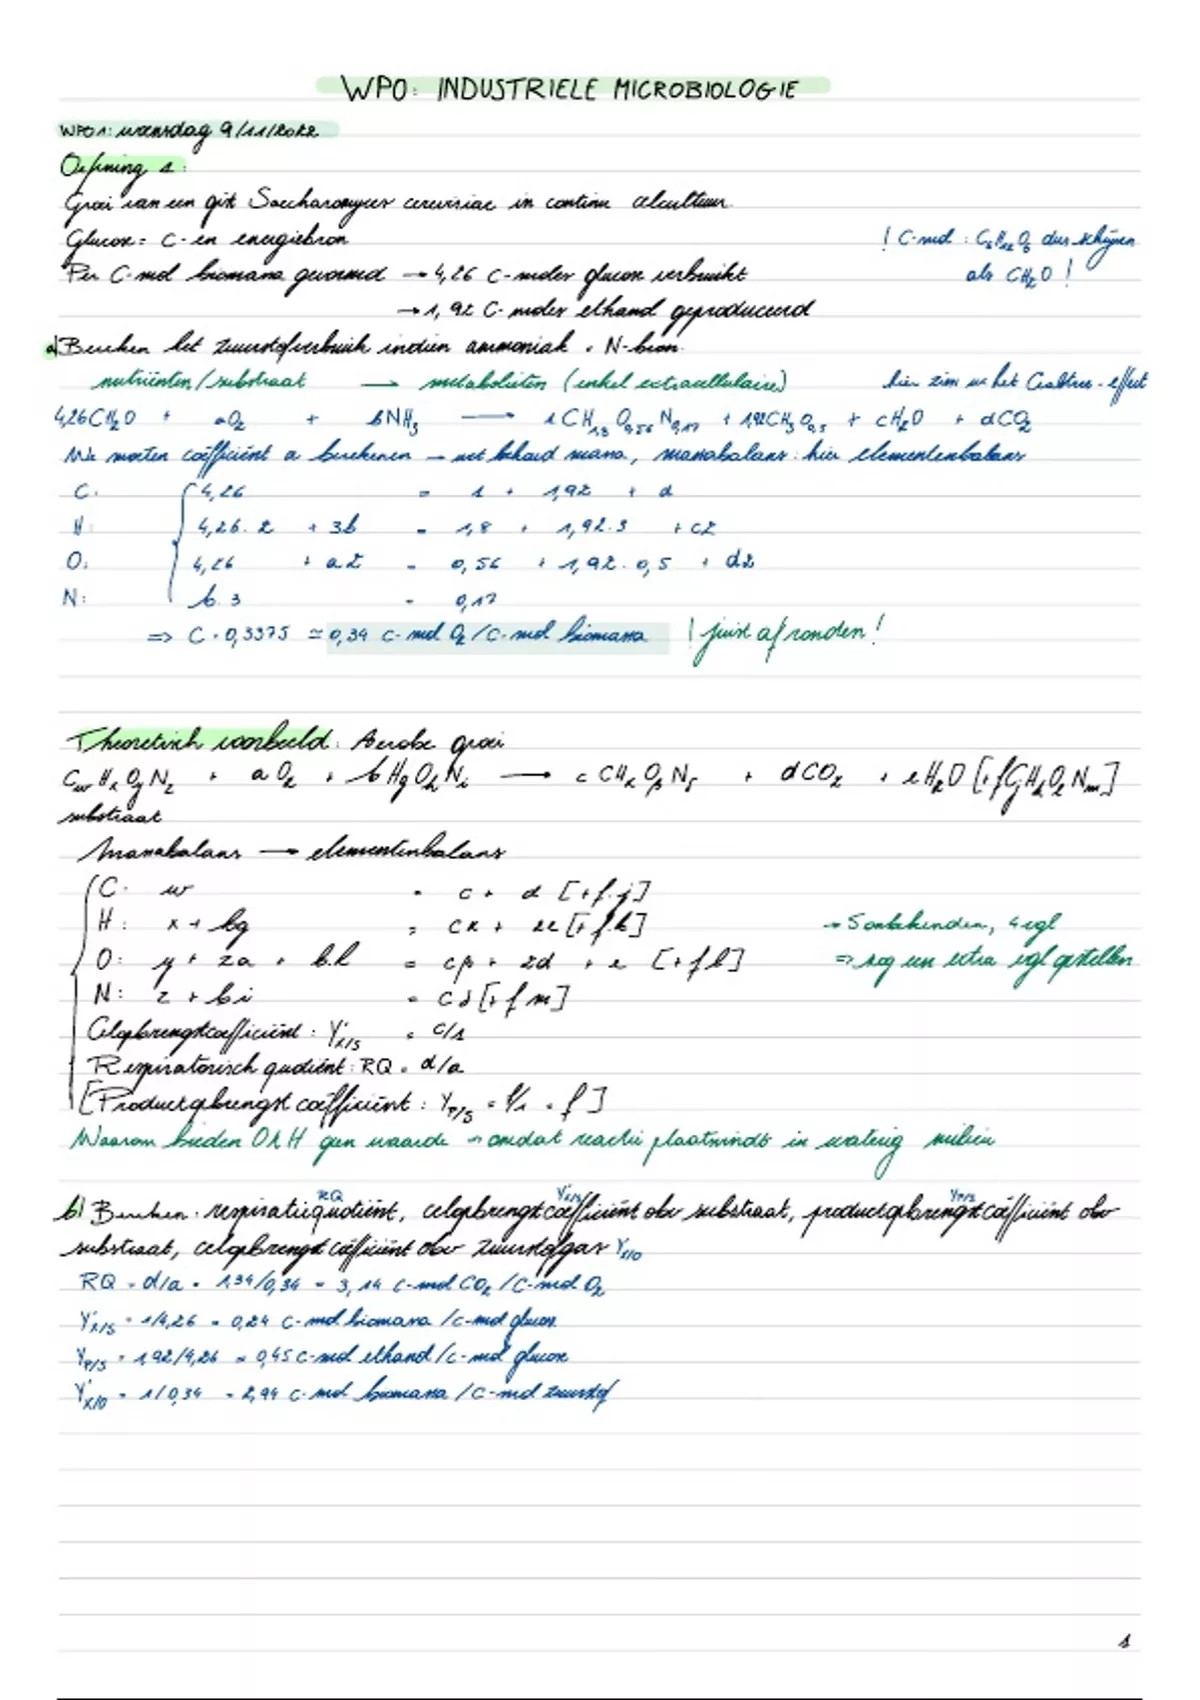 WPO: INDUSTRIËLE MICROBIOLOGIE
WPO1: woensdag 9/11/2022
Oefening 1:
Groei van een gist Saccharomyces cerevisiae in continu celcultuur
Glucose = C- en energiebron ! C-mol : C6H12O6 dus schrijven
Per C-mol biomassa gevormd → 4,26 C-molen glucose verbruikt als CH2O !
→ 1,92 C-molen ethanol geproduceerd
a) Bereken het zuurstofverbruik indien ammoniak = N-bron.
nutriënten/substraat → metabolieten (enkel extracellulaire) hier zien we het Crabtree-effect
4,26CH2O + aO2 + bNH3 → 1 CH1,8 O0,56 N0,17 + 1,92CH3O0,5 + cH2O + dCO2
We moeten coëfficiënt a berekenen → wet behoud massa, massabalans: hier elementenbalans
C: 4,26 = 1 + 1,92 + d
H: 4,26.2 + 3b = 1,8 + 1,92.3 + c2
O: 4,26 + a2 = 0,56 + 1,92.0,5 + d2
N: b.3 = 0,17
=> C = 0,3375 ≃ 0,34 C-mol O2/C-mol biomassa ! juist afronden !
Theoretisch voorbeeld: Aerobe groei
CwHxOyNz + aO2 + bHgOhNi → cCHαOβNδ + dCO2 + eH2O [+fCjHkOlNm]
substraat
Massabalans → elementenbalans
C: w = c + d [+f.j]
H: x + bg = cα + 2e [+fk]
→ 5 onbekenden, 4 vgl
O: y + 2a + b.h = cβ + 2d + e [+fl]
=> nog een extra vgl opstellen
N: z + bi = cδ [+fm]
Celopbrengstcoëfficiënt : Y'x/s = c/1
Respiratorisch quotiënt: RQ = d/a
[Productopbrengst coëfficiënt : Yp/s = f/1 = f]
Waarom bieden O & H geen waarde → omdat reactie plaatsvindt in waterig milieu
RQ Y'x/s Yp/s
b) Bereken: respiratiequotiënt, celopbrengstcoëfficiënt obv substraat, productopbrengstcoëfficiënt obv
substraat, celopbrengst coëfficiënt obv zuurstofgas Yx/o
RQ = d/a = 1,34/0,34 = 3,14 C-mol CO2/C-mol O2
Y'x/s = 1/4,26 = 0,24 C-mol biomassa/C-mol glucose
Yp/s = 1,92/4,26 = 0,45 C-mol ethanol/C-mol glucose
Y'x/o = 1/0,34 = 2,94 C-mol biomassa/C-mol zuurstof
1